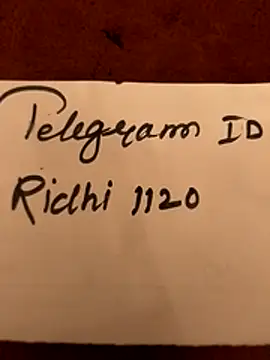 Telegram ID
Ridhi 1120